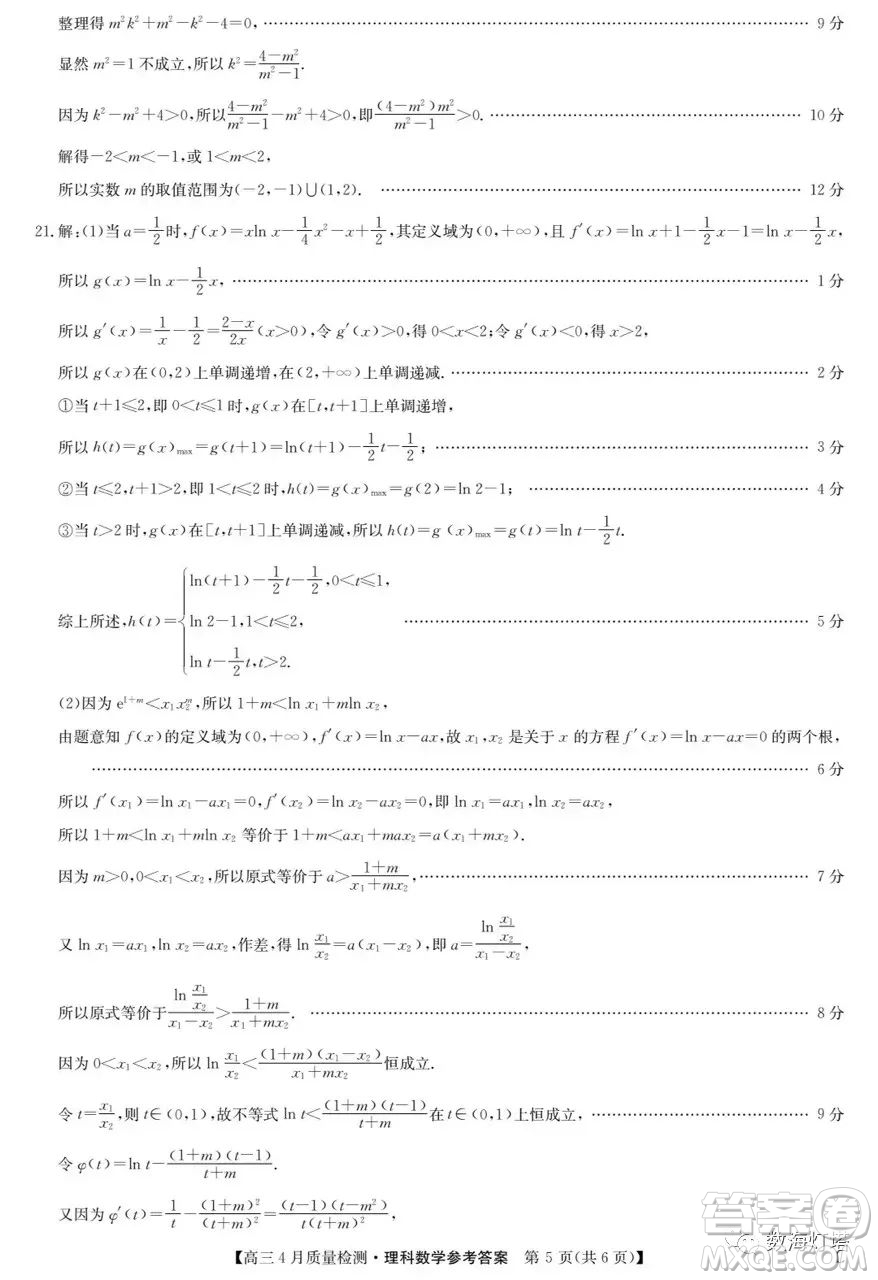 整理得m²k²+m²-k²-4=0,………… 9分
显然m²=1不成立,所以k²=\frac{4-m²}{m²-1}.
因为k²-m²+4>0,所以\frac{4-m²}{m²-1}-m²+4>0,即\frac{(4-m²)m²}{m²-1}>0.………… 10分
解得-2<m<-1,或1<m<2,
所以实数m的取值范围为(-2,-1)∪(1,2). ………… 12分
21.解:(1)当a=\frac{1}{2}时,f(x)=xln x-\frac{1}{4}x²-x+\frac{1}{2},其定义域为(0,+∞),且f′(x)=ln x+1-\frac{1}{2}x-1=ln x-\frac{1}{2}x,
所以g(x)=ln x-\frac{1}{2}x,………… 1分
所以g′(x)=\frac{1}{x}-\frac{1}{2}=\frac{2-x}{2x}(x>0),令g′(x)>0,得0<x<2;令g′(x)<0,得x>2,
所以g(x)在(0,2)上单调递增,在(2,+∞)上单调递减.………… 2分
①当t+1≤2,即0<t≤1时,g(x)在[t,t+1]上单调递增,
所以h(t)=g(x)_{max}=g(t+1)=ln(t+1)-\frac{1}{2}t-\frac{1}{2};………… 3分
②当t≤2,t+1>2,即1<t≤2时,h(t)=g(x)_{max}=g(2)=ln 2-1;………… 4分
③当t>2时,g(x)在[t,t+1]上单调递减,所以h(t)=g(x)_{max}=g(t)=ln t-\frac{1}{2}t.
综上所述,h(t)={ln(t+1)-\frac{1}{2}t-\frac{1}{2},0<t≤1,
ln 2-1,1<t≤2, ………… 5分
ln t-\frac{1}{2}t,t>2.
(2)因为e^{1+m}<x₁x₂^m,所以1+m<ln x₁+mln x₂,
由题意知f(x)的定义域为(0,+∞),f′(x)=ln x-ax,故x₁,x₂是关于x的方程f′(x)=ln x-ax=0的两个根,
………… 6分
所以f′(x₁)=ln x₁-ax₁=0,f′(x₂)=ln x₂-ax₂=0,即ln x₁=ax₁,ln x₂=ax₂,
所以1+m<ln x₁+mln x₂等价于1+m<ax₁+max₂=a(x₁+mx₂).
因为m>0,0<x₁<x₂,所以原式等价于a>\frac{1+m}{x₁+mx₂},………… 7分
又ln x₁=ax₁,ln x₂=ax₂,作差,得ln\frac{x₁}{x₂}=a(x₁-x₂),即a=\frac{ln\frac{x₁}{x₂}}{x₁-x₂},
所以原式等价于\frac{ln\frac{x₁}{x₂}}{x₁-x₂}>\frac{1+m}{x₁+mx₂}. ………… 8分
因为0<x₁<x₂,所以ln\frac{x₁}{x₂}<\frac{(1+m)(x₁-x₂)}{x₁+mx₂}恒成立.
令t=\frac{x₁}{x₂},则t∈(0,1),故不等式ln t<\frac{(1+m)(t-1)}{t+m}在t∈(0,1)上恒成立,………… 9分
令φ(t)=ln t-\frac{(1+m)(t-1)}{t+m}.
又因为φ′(t)=\frac{1}{t}-\frac{(1+m)²}{(t+m)²}=\frac{(t-1)(t-m²)}{t(t+m)²},
【高三4月质量检测·理科数学参考答案 第5页(共6页)】
数海灯塔